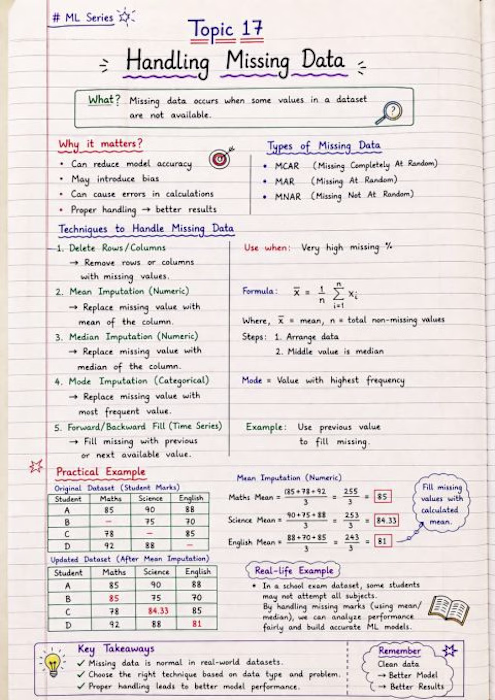 # ML Series
Topic 17
Handling Missing Data
What? Missing data occurs when some values in a dataset
are not available.
Why it matters?
• Can reduce model accuracy
• May introduce bias
• Can cause errors in calculations
• Proper handling → better results
Types of Missing Data
• MCAR (Missing Completely At Random)
• MAR (Missing At Random)
• MNAR (Missing Not At Random)
Techniques to Handle Missing Data
1. Delete Rows/Columns
→ Remove rows or columns
with missing values.
Use when: Very high missing %
2. Mean Imputation (Numeric)
→ Replace missing value with
mean of the column.
Formula: x̄ = 1/n Σ i=1 n xi
Where, x̄ = mean, n = total non-missing values
3. Median Imputation (Numeric)
→ Replace missing value with
median of the column.
Steps: 1. Arrange data
2. Middle value is median
4. Mode Imputation (Categorical)
→ Replace missing value with
most frequent value.
Mode = Value with highest frequency
5. Forward/Backward Fill (Time Series)
→ Fill missing with previous
or next available value.
Example: Use previous value
to fill missing.
Practical Example
Original Dataset (Student Marks)
Student Maths Science English
A 85 90 88
B – 75 70
C 78 – 85
D 92 88 –
Mean Imputation (Numeric)
Maths Mean = (85+78+92)/3 = 255/3 = 85
Science Mean = 90+75+88/3 = 253/3 = 84.33
English Mean = 88+70+85/3 = 243/3 = 81
Fill missing
values with
calculated
mean.
Updated Dataset (After Mean Imputation)
Student Maths Science English
A 85 90 88
B 85 75 70
C 78 84.33 85
D 92 88 81
Real-life Example
• In a school exam dataset, some students
may not attempt all subjects.
By handling missing marks (using mean/
median), we can analyze performance
fairly and build accurate ML models.
Key Takeaways
✓ Missing data is normal in real-world datasets.
✓ Choose the right technique based on data type and problem.
✓ Proper handling leads to better model performance.
Remember
Clean data
→ Better Model
→ Better Results